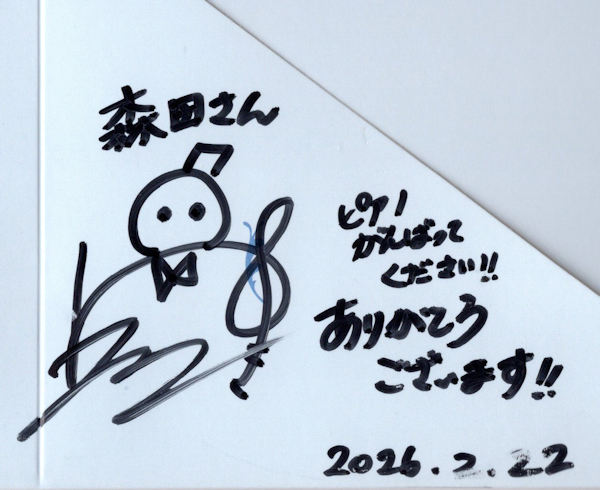 森田さん
ピアノ
がんばって
ください!!
ありがとう
ございます!!
2026.2.22